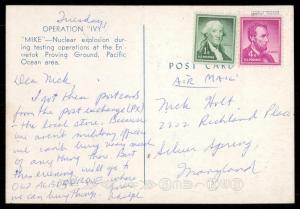 Tuesday,
OPERATION "IVY"
"MIKE"—Nuclear explosion dur-
ing testing operations at the En-
iwetok Proving Ground, Pacific
Ocean area.
Dear Nick,
I got these postcards
from the post exchange (PX)
- the local store. Because
we aren't military officers
we can't buy very much
of anything there. But
this evening will go to
OLD ALBUQUERQUE where
we can buy things.
POST CARD
AIR MAIL
Nick Holt
2202 Richland Place
Silver Spring,
Maryland